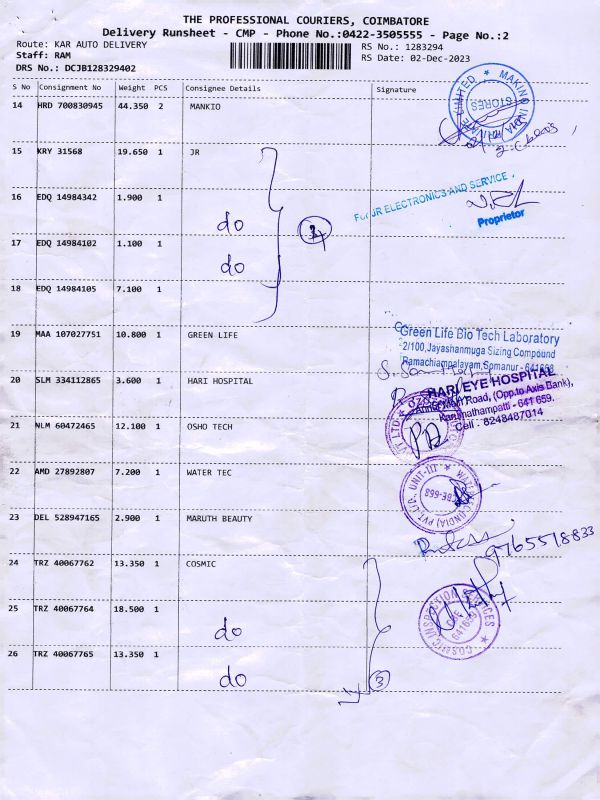 THE PROFESSIONAL COURIERS, COIMBATORE
Delivery Runsheet - CMP - Phone No.:0422-3505555 - Page No.:2
Route: KAR AUTO DELIVERY
RS No.: 1283294
Staff: RAM
RS Date: 02-Dec-2023
DRS No.: DCJB128329402
S No Consignment No Weight PCS Consignee Details Signature
14 HRD 700830945 44.350 2 MANKIO
STORES
15 KRY 31568 19.650 1 JR
16 EDQ 14984342 1.900 1
do
For JR ELECTRONICS AND SERVICE
Proprietor
17 EDQ 14984102 1.100 1
do
18 EDQ 14984105 7.100 1
19 MAA 107027751 10.800 1 GREEN LIFE
Green Life Bio Tech Laboratory
2/100,Jayashanmuga Sizing Compound
Ramachiampalayam,Somanur - 641668
20 SLM 334112865 3.600 1 HARI HOSPITAL
HARI EYE HOSPITAL
Annur Main Road, (Opp.to Axis Bank),
Karumathampatti - 641 659.
Cell : 8248467014
21 NLM 60472465 12.100 1 OSHO TECH
22 AMD 27892807 7.200 1 WATER TEC
WATERTEC(INDIA) PVT.LTD., UNIT-III
CBE-668
23 DEL 528947165 2.900 1 MARUTH BEAUTY
9765518833
24 TRZ 40067762 13.350 1 COSMIC
25 TRZ 40067764 18.500 1
do
COSMIC INSPECTION SERVICES
CBE
26 TRZ 40067765 13.350 1
do
3